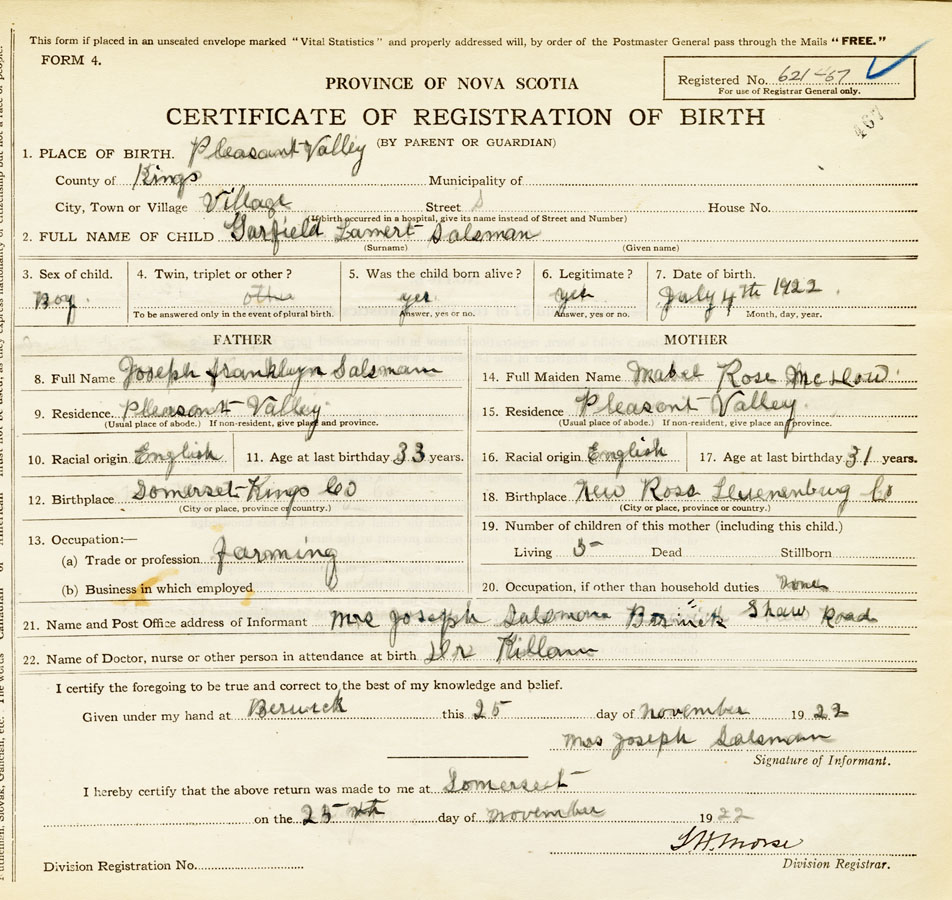 This form if placed in an unsealed envelope marked "Vital Statistics" and properly addressed will, by order of the Postmaster General pass through the Mails "FREE."
FORM 4.
Registered No. 621467
For use of Registrar General only.
PROVINCE OF NOVA SCOTIA
CERTIFICATE OF REGISTRATION OF BIRTH
467
(BY PARENT OR GUARDIAN)
1. PLACE OF BIRTH. Pleasant Valley
County of Kings Municipality of
City, Town or Village Village Street House No.
(If birth occurred in a hospital, give its name instead of Street and Number)
2. FULL NAME OF CHILD Garfield Lamert Salsman
(Surname) (Given name)
3. Sex of child. Boy
4. Twin, triplet or other?
To be answered only in the event of plural birth.
5. Was the child born alive? yes
Answer, yes or no.
6. Legitimate? yes
Answer, yes or no.
7. Date of birth. July 4th 1922
Month, day, year.
FATHER
8. Full Name Joseph Franklyn Salsman
9. Residence Pleasant Valley
(Usual place of abode.) If non-resident, give place and province.
10. Racial origin English 11. Age at last birthday 33 years.
12. Birthplace Somerset Kings Co
(City or place, province or country.)
13. Occupation:—
(a) Trade or profession farming
(b) Business in which employed
MOTHER
14. Full Maiden Name Mabel Rose
15. Residence Pleasant Valley
(Usual place of abode.) If non-resident, give place and province.
16. Racial origin English 17. Age at last birthday 31 years.
18. Birthplace New Ross Co
(City or place, province or country.)
19. Number of children of this mother (including this child.)
Living 5 Dead Stillborn
20. Occupation, if other than household duties None
21. Name and Post Office address of Informant Mrs Joseph Salsman Shaw Road
22. Name of Doctor, nurse or other person in attendance at birth Dr Killam
I certify the foregoing to be true and correct to the best of my knowledge and belief.
Given under my hand at Berwick this 25 day of November 1922
Mrs Joseph Salsman
Signature of Informant.
I hereby certify that the above return was made to me at Somerset
on the 25th day of November 1922
Morse
Division Registration No. Division Registrar.